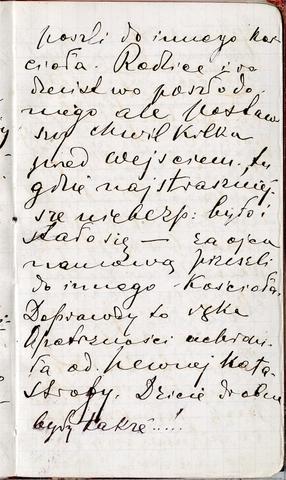 poszli do innego koś-
cioła. Rodzice i ro
dzeństwo poszło do
niego ale postaw
szy chwil kilka
przed wejściem, tu
gdzie najstraszniej-
sze niebezp: było i
stało się — za ojca
namową przeszli
do innego Kościoła.
Doprawdy to ręka
Opatrzności uchroni-
ła od pewnej kata
strofy. Dzieci drobne
były także .....!